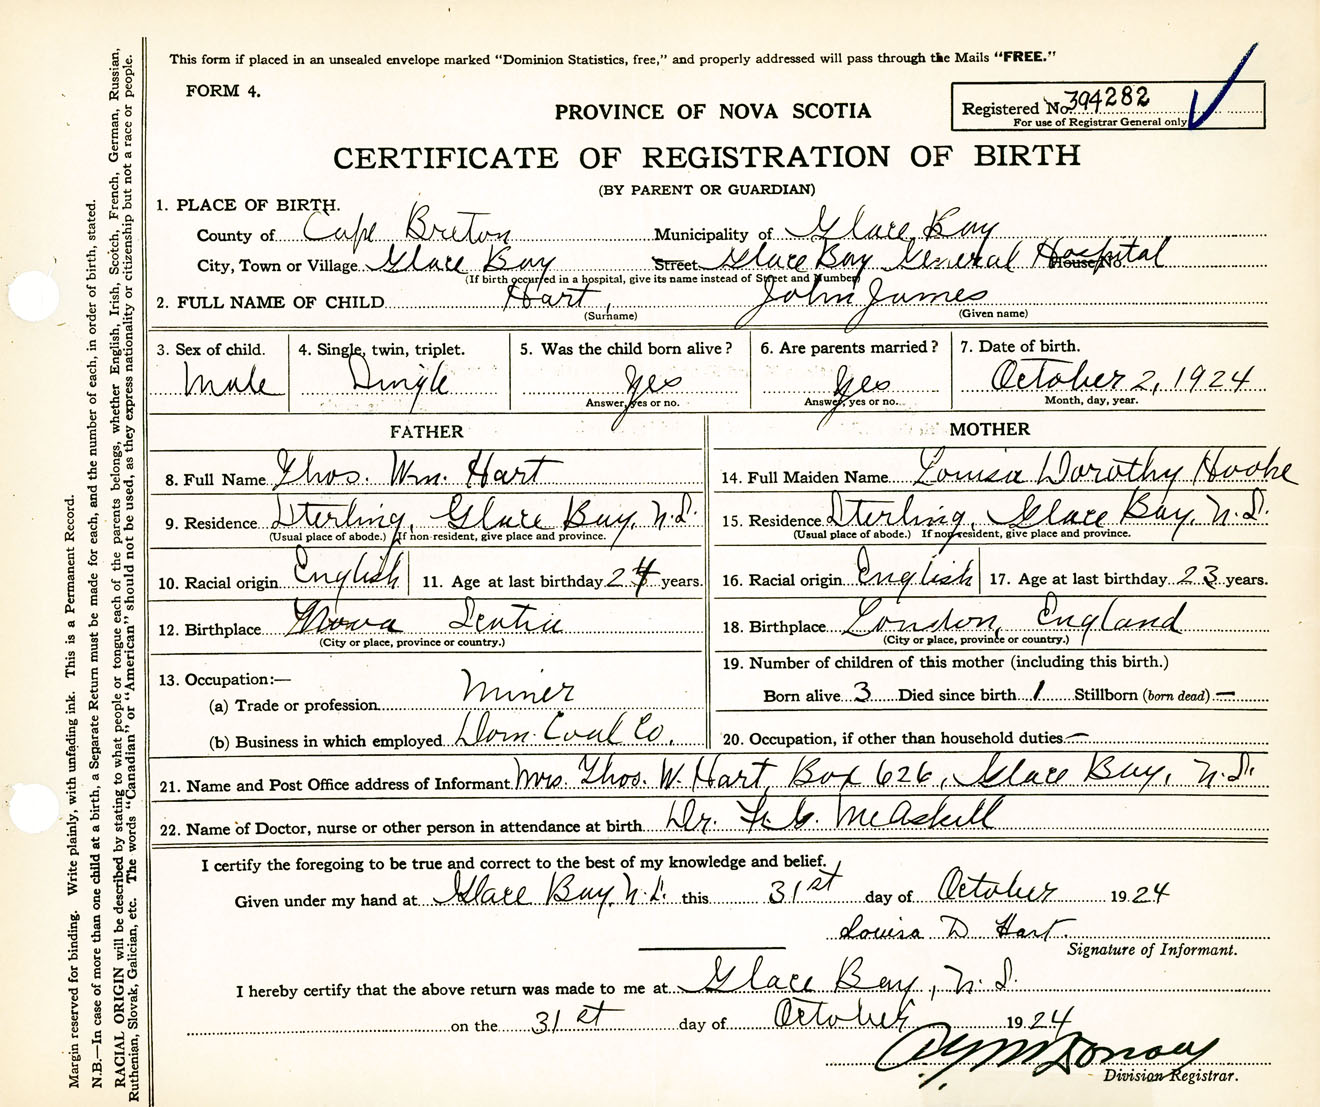 This form if placed in an unsealed envelope marked "Dominion Statistics, free," and properly addressed will pass through the Mails "FREE."
FORM 4.
Registered No. 394282
For use of Registrar General only
PROVINCE OF NOVA SCOTIA
CERTIFICATE OF REGISTRATION OF BIRTH
(BY PARENT OR GUARDIAN)
1. PLACE OF BIRTH.
County of Cape Breton Municipality of Glace Bay
City, Town or Village Glace Bay Street Glace Bay General Hospital House No.
(If birth occurred in a hospital, give its name instead of Street and Number)
2. FULL NAME OF CHILD Hart, John James
(Surname) (Given name)
3. Sex of child. 4. Single, twin, triplet. 5. Was the child born alive? 6. Are parents married? 7. Date of birth.
Male Single Yes Yes October 2, 1924
Answer, yes or no. Answer, yes or no. Month, day, year.
FATHER MOTHER
8. Full Name Thos. Wm. Hart 14. Full Maiden Name Louisa Dorothy Hooke
9. Residence Sterling, Glace Bay, N.S. 15. Residence Sterling, Glace Bay, N.S.
(Usual place of abode.) If non-resident, give place and province. (Usual place of abode.) If non-resident, give place and province.
10. Racial origin English 11. Age at last birthday 24 years. 16. Racial origin English 17. Age at last birthday 23 years.
12. Birthplace Nova Scotia 18. Birthplace London, England
(City or place, province or country.) (City or place, province or country.)
13. Occupation:— 19. Number of children of this mother (including this birth.)
(a) Trade or profession Miner Born alive 3 Died since birth 1 Stillborn (born dead) —
(b) Business in which employed Dom. Coal Co. 20. Occupation, if other than household duties —
21. Name and Post Office address of Informant Mrs. Thos. W. Hart, Box 626, Glace Bay, N.S.
22. Name of Doctor, nurse or other person in attendance at birth Dr. McAskill
I certify the foregoing to be true and correct to the best of my knowledge and belief.
Given under my hand at Glace Bay, N.S. this 31st day of October 1924
Louisa D Hart
Signature of Informant.
I hereby certify that the above return was made to me at Glace Bay, N.S.
on the 31st day of October 1924
Division Registrar.
Margin reserved for binding. Write plainly, with unfading ink. This is a Permanent Record.
N.B.—In case of more than one child at a birth, a Separate Return must be made for each, and the number of each, in order of birth, stated.
RACIAL ORIGIN will be described by stating to what people or tongue each of the parents belongs, whether English, Irish, Scotch, French, German, Russian,
Ruthenian, Slovak, Galician, etc. The words "Canadian" or "American" should not be used, as they express nationality or citizenship but not a race or people.